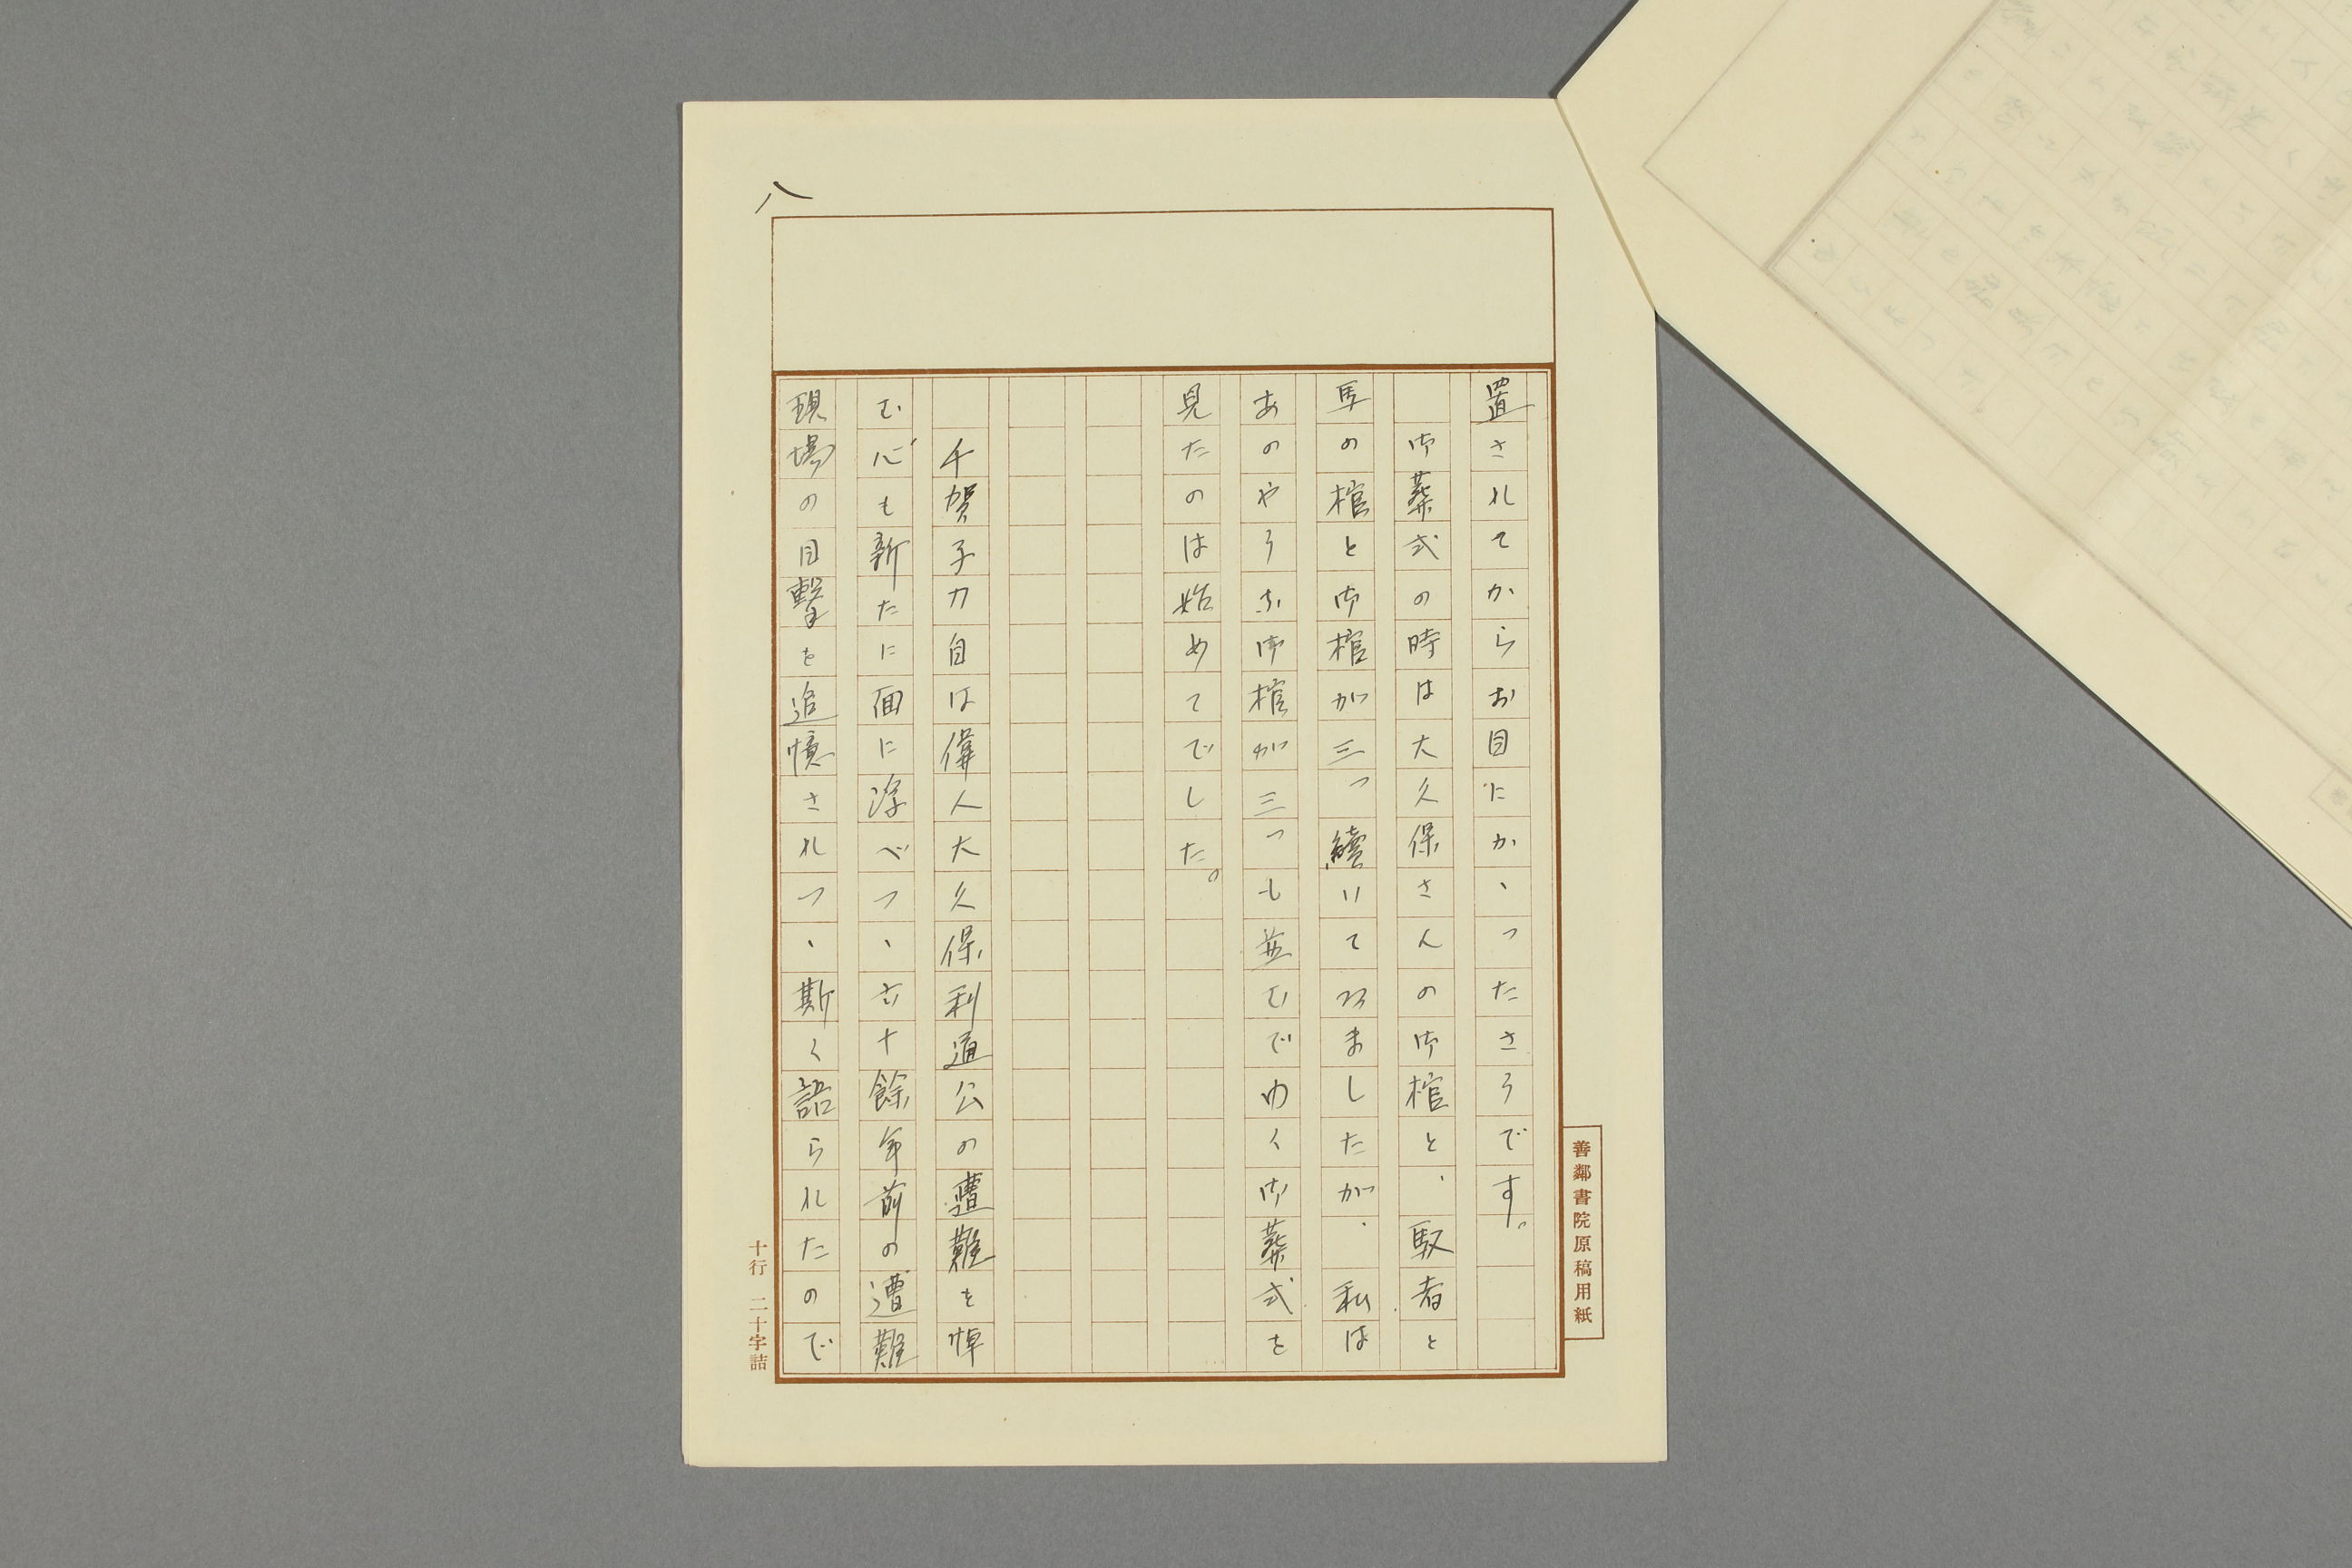 八
置されてからお目にかゝつたさうです。
御葬式の時は大久保さんの御棺と、馭者と
馬の棺と御棺が三つ續いてゐましたが、私は
あのやうな御棺が三つも並むでゆく御葬式を
見たのは始めてでした。
千賀子刀自は偉人大久保利通公の遭難を悼
む心も新たに面に浮べつゝ六十餘年前の遭難
現場の目擊を追憶されつゝ斯く語られたので
善鄰書院原稿用紙
十行 二十字詰